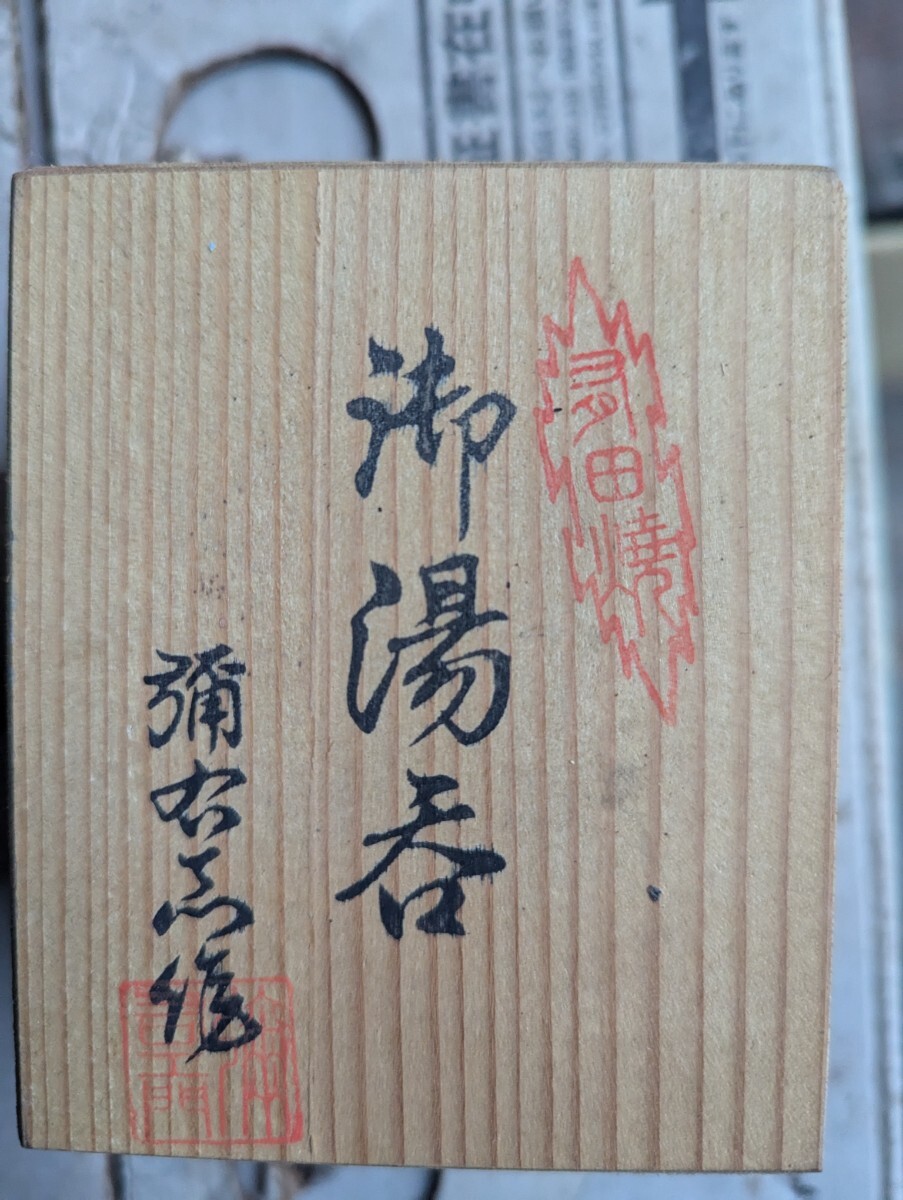 有田焼
御湯呑
彌右エ門作